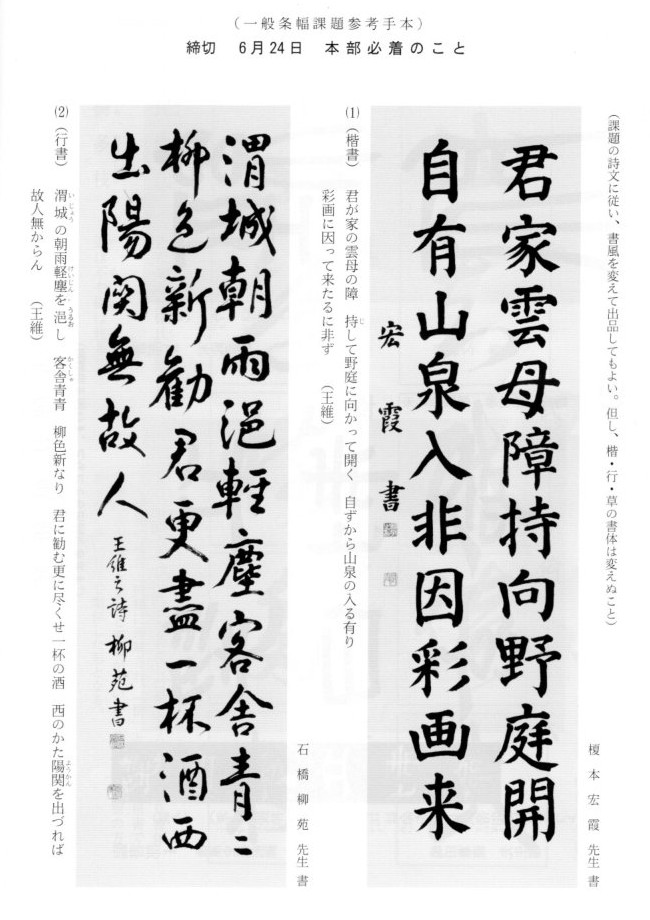 (一般条幅課題参考手本)
締切　6月24日　本部必着のこと
(課題の詩文に従い、書風を変えて出品してもよい。但し、楷・行・草の書体は変えぬこと)
榎本宏霞先生書
君家雲母障持向野庭開
自有山泉入非因彩画来
宏霞書
(1)(楷書)　君が家の雲母の障　持して野庭に向かって開く　自ずから山泉の入る有り
彩画に因って来たるに非ず　(王維)
石橋柳苑先生書
渭城朝雨浥軽塵客舎青〻
柳色新勧君更盡一杯酒西
出陽関無故人
王維之詩柳苑書
(2)(行書)　渭城の朝雨軽塵を浥し　客舎青青　柳色新なり　君に勧む更に尽くせ一杯の酒　西のかた陽関を出づれば
故人無からん　(王維)